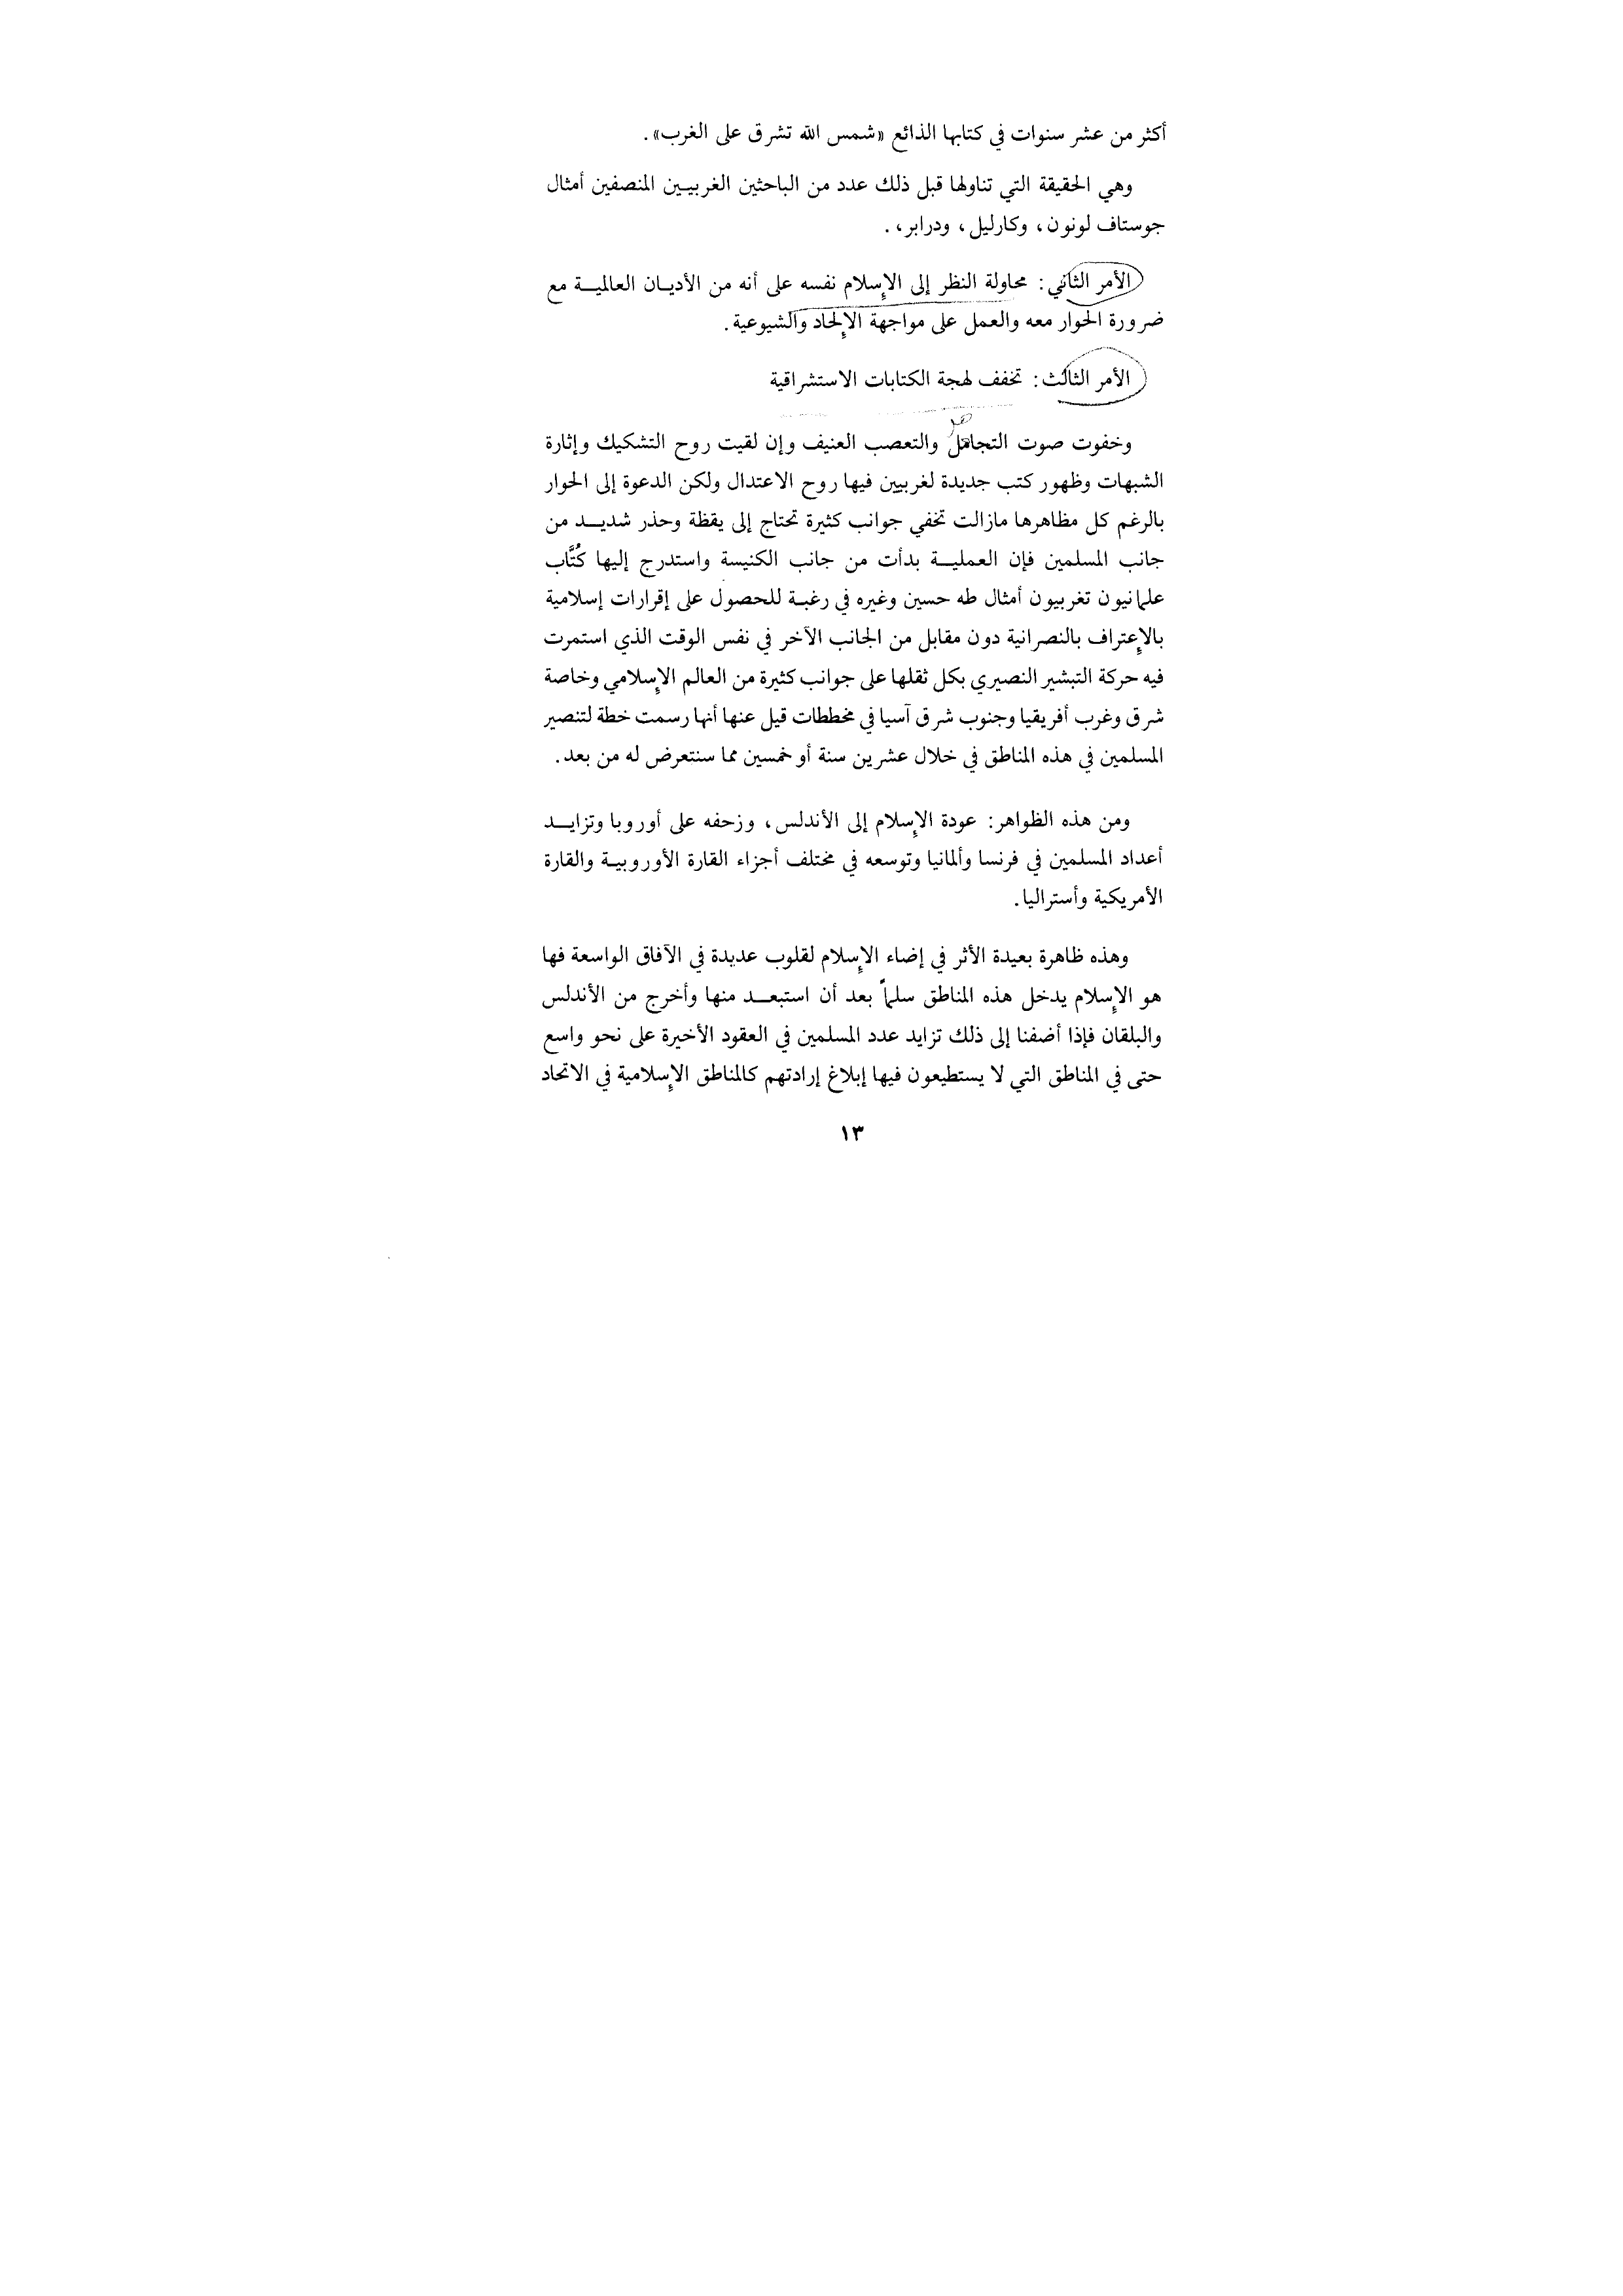 أكثر من عشر سنوات في كتابها الذائع «شمس الله تشرق على الغرب».
وهي الحقيقة التي تناولها قبل ذلك عدد من الباحثين الغربيين المنصفين أمثال
جوستاف لونون، وكارليل، ودرابر، .
الأمر الثاني: محاولة النظر إلى الإسلام نفسه على أنه من الأديان العالمية مع
ضرورة الحوار معه والعمل على مواجهة الإلحاد والشيوعية.
الأمر الثالث: تخفف لهجة الكتابات الاستشراقية
وخفوت صوت التجاهل والتعصب العنيف وإن لقيت روح التشكيك وإثارة
الشبهات وظهور كتب جديدة لغربيين فيها روح الاعتدال ولكن الدعوة إلى الحوار
بالرغم كل مظاهرها مازالت تخفي جوانب كثيرة تحتاج إلى يقظة وحذر شديد من
جانب المسلمين فإن العملية بدأت من جانب الكنيسة واستدرج إليها كُتَّاب
علمانيون تغربيون أمثال طه حسين وغيره في رغبة للحصول على إقرارات إسلامية
بالإعتراف بالنصرانية دون مقابل من الجانب الآخر في نفس الوقت الذي استمرت
فيه حركة التبشير النصيري بكل ثقلها على جوانب كثيرة من العالم الإسلامي وخاصة
شرق وغرب أفريقيا وجنوب شرق آسيا في مخططات قيل عنها أنها رسمت خطة لتنصير
المسلمين في هذه المناطق في خلال عشرين سنة أو خمسين مما سنتعرض له من بعد.
ومن هذه الظواهر: عودة الإسلام إلى الأندلس، وزحفه على أوروبا وتزايد
أعداد المسلمين في فرنسا وألمانيا وتوسعه في مختلف أجزاء القارة الأوروبية والقارة
الأمريكية وأستراليا.
وهذه ظاهرة بعيدة الأثر في إضاء الإسلام لقلوب عديدة في الآفاق الواسعة فها
هو الإسلام يدخل هذه المناطق سلماً بعد أن استبعد منها وأخرج من الأندلس
والبلقان فإذا أضفنا إلى ذلك تزايد عدد المسلمين في العقود الأخيرة على نحو واسع
حتى في المناطق التي لا يستطيعون فيها إبلاغ إرادتهم كالمناطق الإسلامية في الاتحاد
١٣